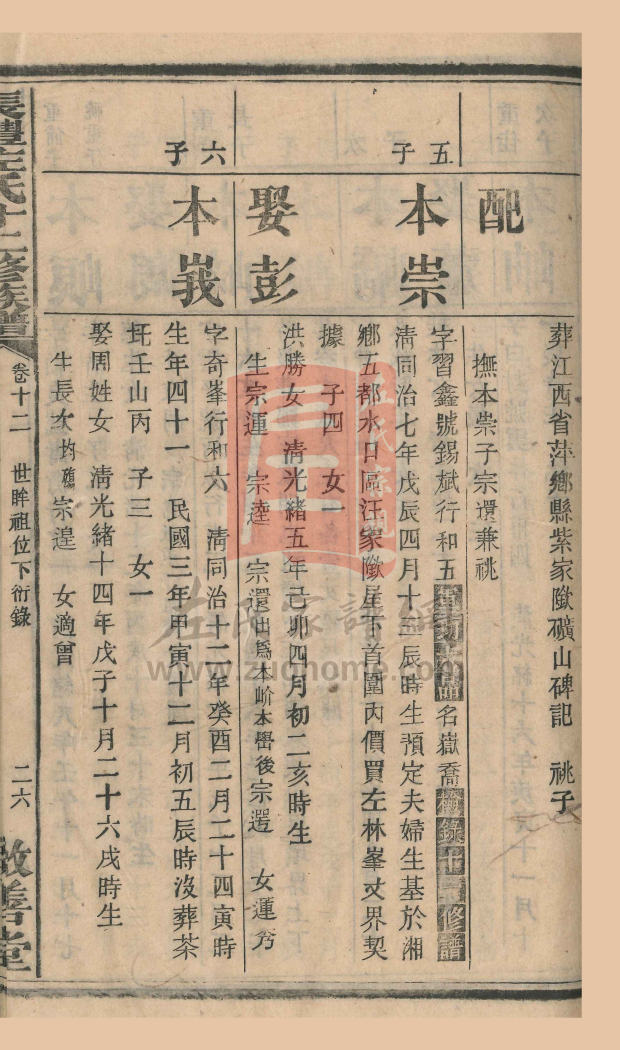 配
葬江西省萍鄉縣紫家𡺸礦山碑記 祧子
撫本崇子宗還兼祧
五子
本崇
字習鑫號錫斌行和五
名嶽喬
修譜
清同治七年戊辰四月十三辰時生預定夫婦生基於湘
鄉五都水口區汪家𡺸屋下首圍內價買左林峯丈界契
據 子四 女一
娶彭
洪勝女 清光緒五年己卯四月初二亥時生
生宗運 宗達 宗還出為本峆本嶨後宗選 女運秀
六子
本峩
字奇峯行和六 清同治十二年癸酉二月二十四寅時
生年四十一 民國三年甲寅十二月初五辰時沒葬茶
玗壬山丙 子三 女一
娶周姓女 清光緒十四年戊子十月二十六戌時生
生長次均殤宗遑 女適曾
長醴左氏十二修族譜
卷十二 世眸祖位下衍錄
二六
敬善堂
左氏家譜網
www.zuohome.com